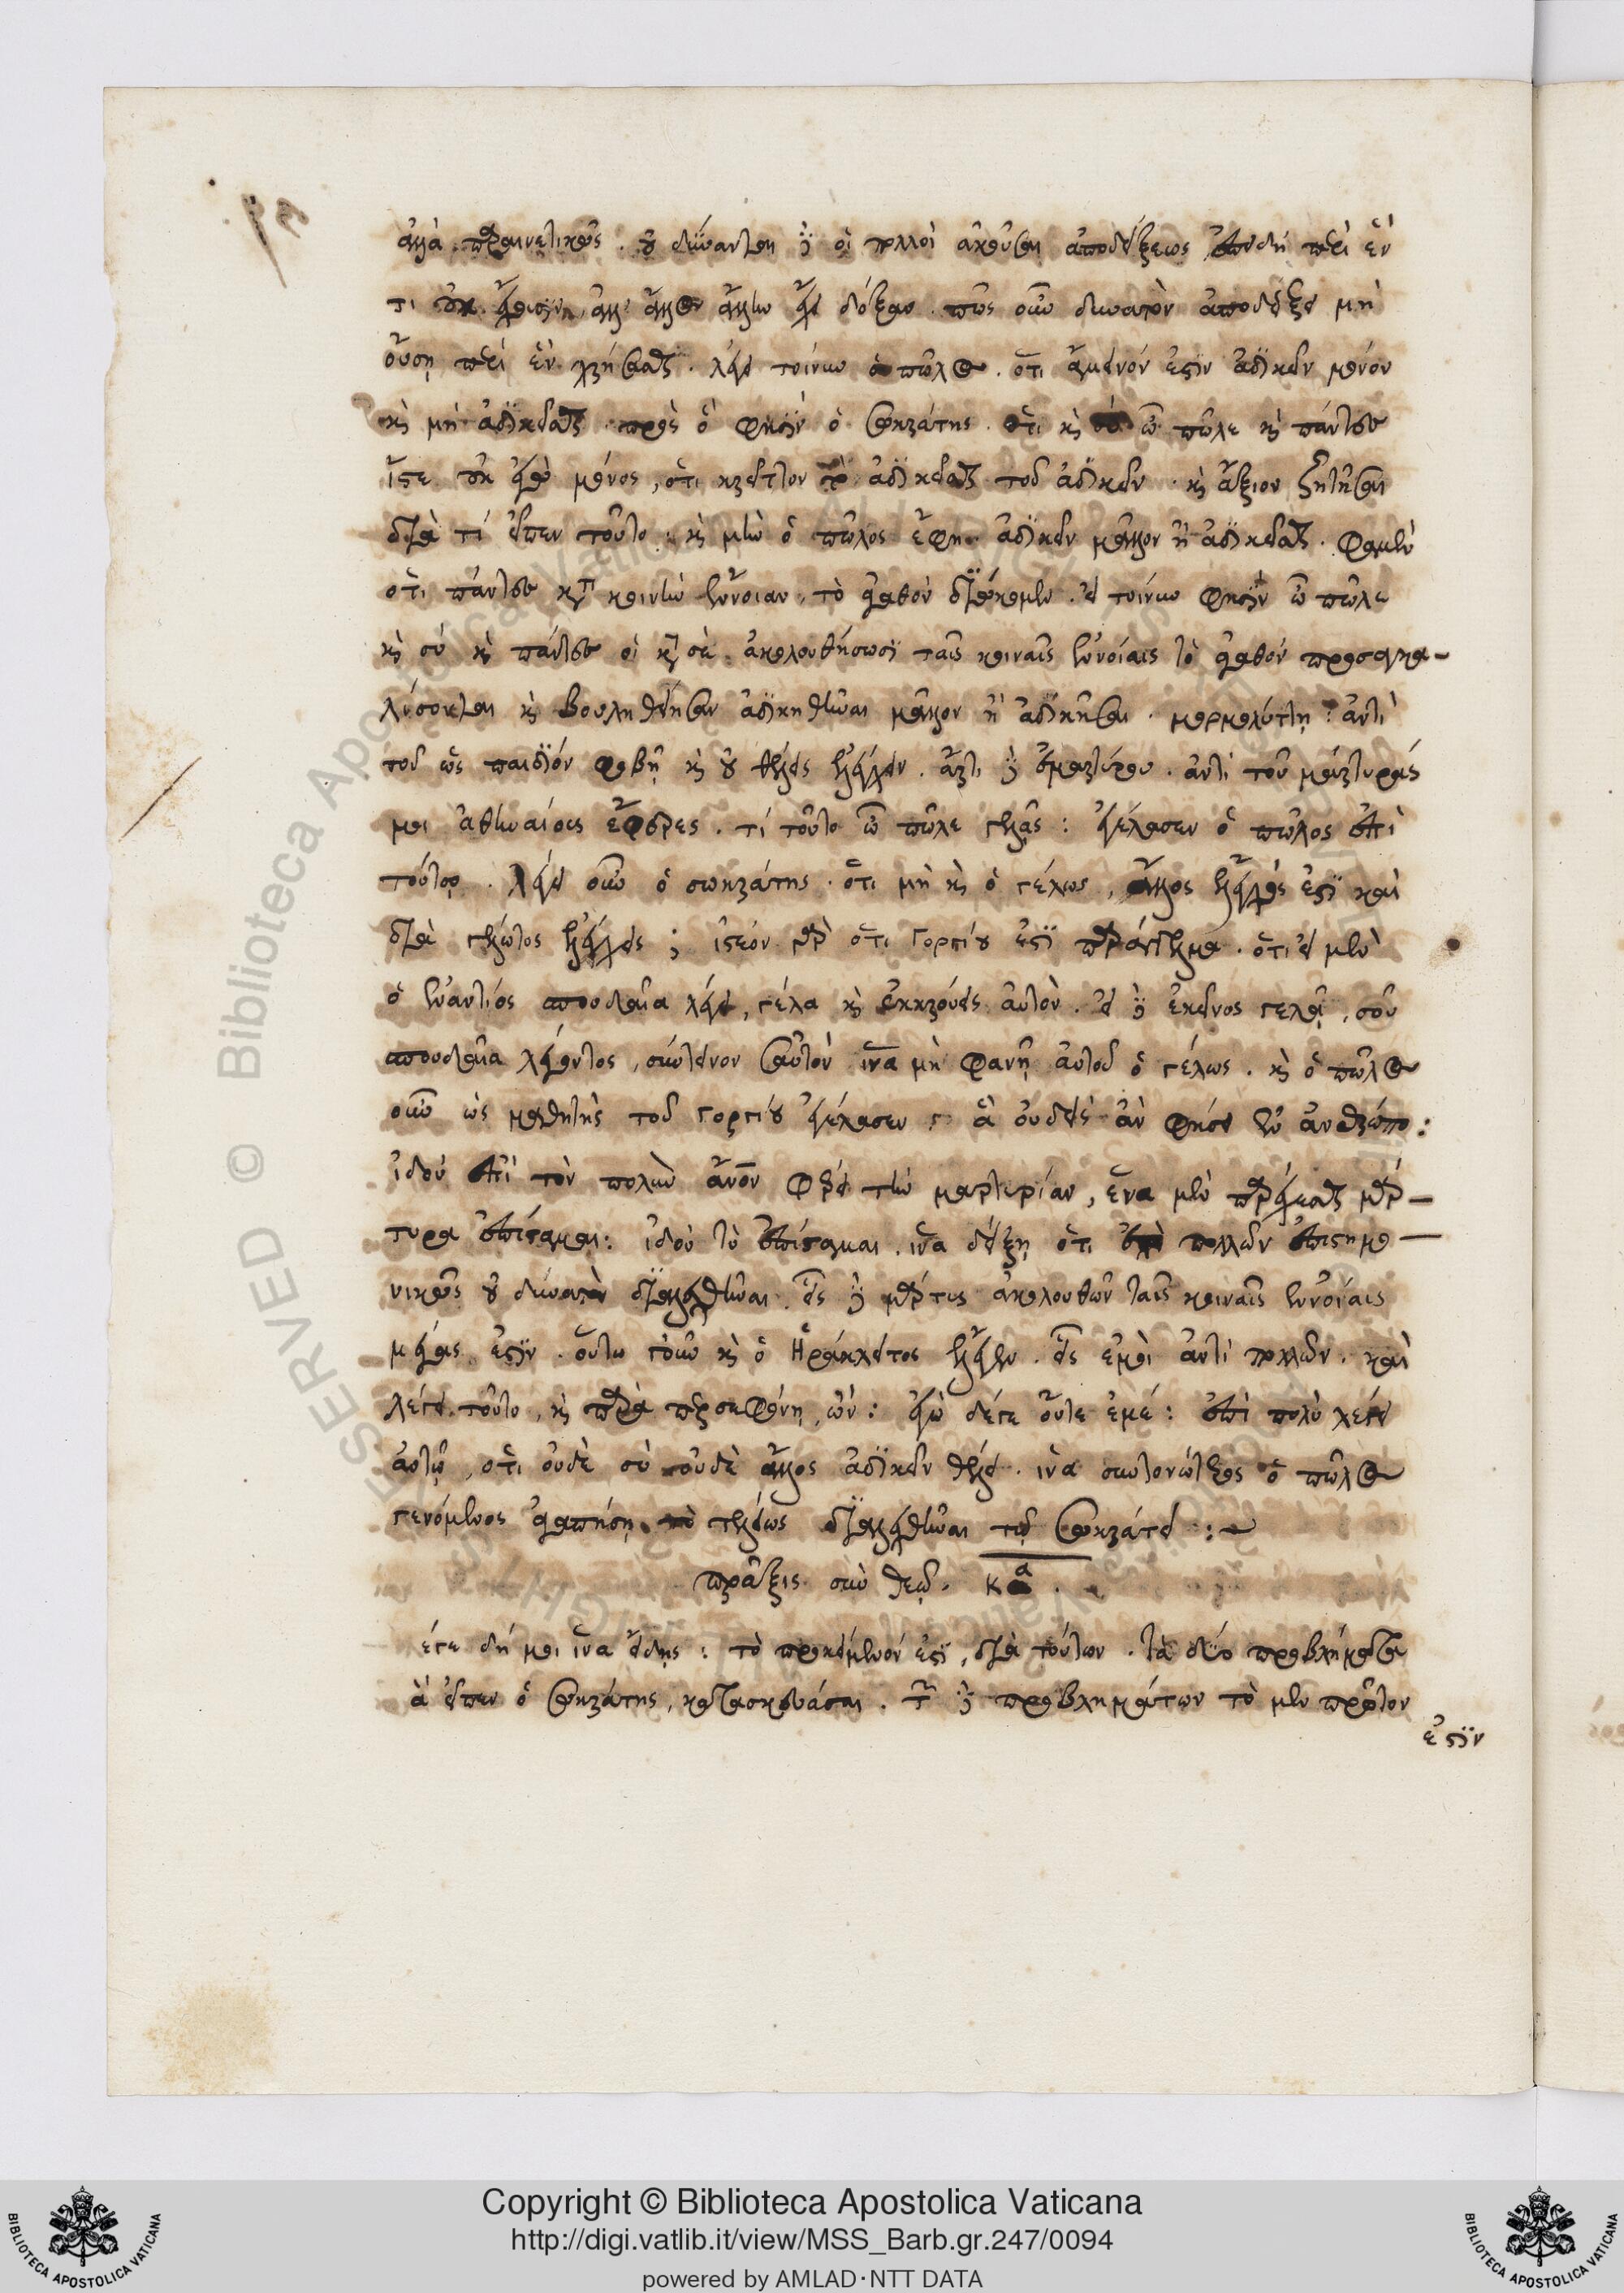 ἀλλὰ παραινετικῶς. οὐ δύνανται γὰρ οἱ πολλοὶ ἀκοῦσαι ἀποδείξεως ἐπειδὴ περὶ ἕν
τι οὐκ ἄγουσιν, ἀλλ' ἄλλος ἄλλην ἔχει δόξαν. πῶς οὖν δυνατὸν ἀποδείξει μὴ
οὔσῃ περὶ ἓν χρήσασθαι. λέγει τοίνυν ὁ πῶλος. ὅτι ἄμεινόν ἐστιν ἀδικεῖν μόνον
καὶ μὴ ἀδικεῖσθαι. πρὸς ὅ φησιν ὁ σωκράτης. ὅτι καὶ σὺ ὦ πῶλε καὶ πάντες
ἴστε οὐκ ἐγὼ μόνος, ὅτι κρεῖττον τὸ ἀδικεῖσθαι τοῦ ἀδικεῖν. καὶ ἄξιον ζητῆσαι
διὰ τί εἶπεν τοῦτο: καὶ μὴν ὁ πῶλος ἔφη ἀδικεῖν μᾶλλον ἢ ἀδικεῖσθαι. φαμὲν
ὅτι πάντες κατὰ κοινὴν ἔννοιαν, τὸ ἀγαθὸν διώκομεν. εἰ τοίνυν φησὶν ὦ πῶλε
καὶ σὺ καὶ πάντες οἱ κατὰ σὲ ἀκολουθήσωσι ταῖς κοιναῖς ἐννοίαις τὸ ἀγαθὸν προσαγκα-
λέσονται καὶ βουληθεῖησαν ἀδικηθῆναι μᾶλλον ἢ ἀδικῆσαι. μορμολύττῃ: ἀντὶ
τοῦ ὡς παιδίον φοβῇ καὶ οὐ θέλεις ἐλέγχειν. ἄρτι γὰρ ἐμαρτύρου. ἀντὶ τοῦ μάρτυράς
μοι ἀθηναίους ἔφερες. τί τοῦτο ὦ πῶλε γελᾷς: ἐγέλασεν ὁ πῶλος ἐπὶ
τούτοις. λέγει οὖν ὁ σωκράτης. ὅτι μὴ καὶ ὁ γέλως, ἄλλος ἔλεγχός ἐστι καὶ
διὰ γέλωτος ἐλέγχεις; ἰστέον γὰρ ὅτι Γοργίου ἐστὶ παράγγελμα. ὅτι εἰ μὲν
ὁ ἐναντίος σπουδαῖα λέγει, γέλα καὶ ἐκκρούεις αὐτόν. εἰ γὰρ ἐκεῖνος γελᾷ, σοῦ
σπουδαῖα λέγοντος, σύντεινον σαυτὸν ἵνα μὴ φανῇ αὐτοῦ ὁ γέλως. καὶ ὁ πῶλος
οὖν ὡς μαθητὴς τοῦ γοργίου ἐγέλασεν: ἃ οὐδεὶς ἂν φήσει ἐν ἀνθρώποις:
ἰδοὺ ἐπὶ τὸν πολὺν ἄνον φέρει τὴν μαρτυρίαν, ἕνα μὲν παρέχεσθαι μάρ-
τυρα ἐπίσταμαι: ἰδοὺ τὸ ἐπίσταμαι. ἵνα δείξῃ ὅτι ἐπὶ πολλῶν ἐπιστημο-
νικῶς οὐ δυνατὸν διαλεχθῆναι. εἷς γὰρ μάρτυς ἀκολουθῶν ταῖς κοιναῖς ἐννοίαις
μέγας ἐστίν. οὕτω γοῦν καὶ ὁ Ἡράκλειτος ἔλεγεν. εἷς ἐμοὶ ἀντὶ πολλῶν. καὶ
λέγω τοῦτο, καὶ παρὰ περσεφόνῃ ὤν: ἐγὼ δέ γε οὔτε ἐμέ: ἐπὶ πολὺ λέγει
αὐτῷ, ὅτι οὐδὲ σὺ οὐδὲ ἄλλος ἀδικεῖν θέλει. ἵνα συντονώτερος ὁ πῶλος
γενόμενος ἀγαπήσῃ τὸ τελέως διαλεχθῆναι τῷ σωκράτει :~
πρᾶξις σὺν θεῷ. κα.
έγε δή μοι ἵνα εἰδῇς: τὸ προκείμενόν ἐστι, διὰ τούτων. τὰ δύο προβλήματα
ἃ εἶπεν ὁ σωκράτης, κατασκευάσαι. τῶν γὰρ προβλημάτων τὸ μὲν πρῶτον
ἐστὶν
Copyright © Biblioteca Apostolica Vaticana
http://digi.vatlib.it/view/MSS_Barb.gr.247/0094
powered by AMLAD·NTT DATA